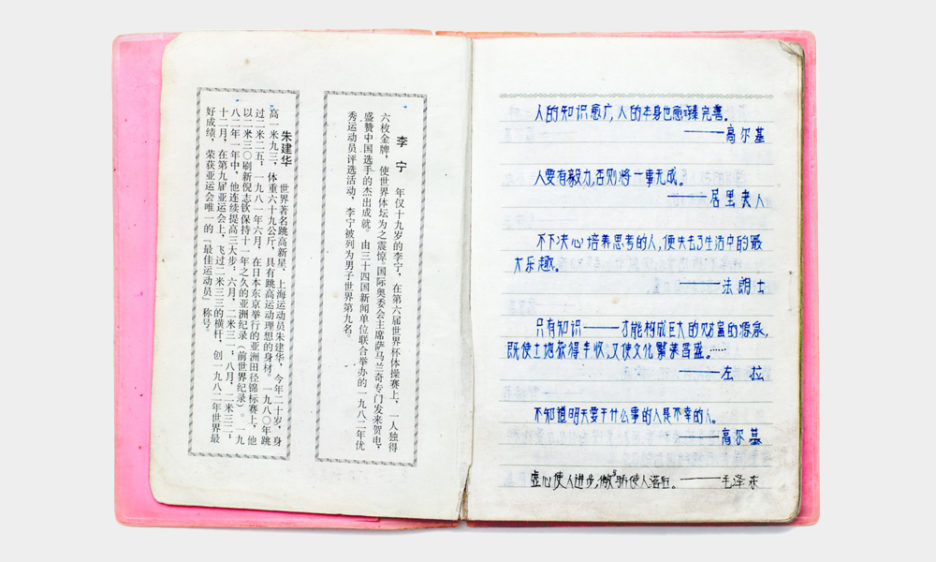 李宁 年仅十九岁的李宁，在第六届世界杯体操赛上，一人独得
六枚金牌，使世界体坛为之震惊。国际奥委会主席萨马兰奇专门发来贺电，
盛赞中国选手的杰出成就。由三十四国新闻单位联合举办的一九八二年优
秀运动员评选活动，李宁被列为男子世界第九名。
朱建华 世界著名跳高新星、上海运动员朱建华，今年二十岁，身
高一米九三，体重六十九公斤，具有跳高运动理想的身材。一九八〇年跳
过二米二五；一九八一年六月，在日本东京举行的亚洲田径锦标赛上，他
以二米三〇刷新倪志钦保持十一年之久的亚洲纪录（前世界纪录）。一九
八二年中，他连续提高三大步：六月，二米三一；八月，二米三二；
十二月，在第九届亚运会上，飞过二米三三的横杆，创一九八二年世界最
好成绩，荣获亚运会唯一的『最佳运动员』称号。
人的知识愈广,人的本身也愈臻完善。
———高尔基
人要有毅力,否则将一事无成。
———居里夫人
不下决心培养思考的人,便失去了生活中的最
大乐趣。
———法朗士
只有知识———才能构成巨大的财富的源泉,
既使土地获得丰收,又使文化繁荣昌盛。……
———左拉
不知道明天要干什么事的人是不幸的人。
———高尔基
虚心使人进步,傲骄使人落后。———毛泽东